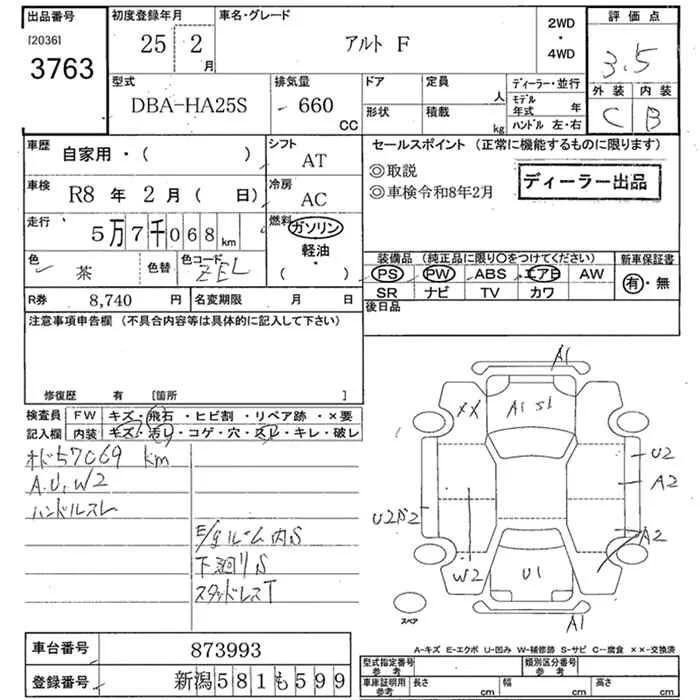 出品番号 初度登録年月 車名・グレード 2WD ・ 4WD 評価点
[2036] 25 2 月 アルト F 3.5
3763
型式 排気量 ドア 定員 人 ディーラー・並行 外装 内装
DBA-HA25S 660 CC 形状 積載 kg モデル年式 年 C B
ハンドル 左・右
車歴 自家用・( ) シフト AT セールスポイント (正常に機能するものに限ります)
車検 R8 年 2 月 ( 日) 冷房 AC ◎取説
◎車検令和8年2月 ディーラー出品
走行 5万7千068km 燃料 ガソリン 軽油・( )
色 茶 色替 色コード ZEL 装備品 (純正品に限り○をつけてください) 新車保証書
PS PW ABS エアB AW 有・無
SR ナビ TV カワ
R券 8,740 円 名変期限 月 日 後日品
注意事項申告欄 (不具合内容等は具体的に記入して下さい)
修復歴 有 [箇所 ]
検査員 FW キズ・飛石・ヒビ割・リペア跡・×要
記入欄 内装 キズ・汚レ・コゲ・穴・スレ・キレ・破レ
オド57069 km
A.U.W2
ハンドルスレ
E/gルーム内S
下廻りS
スタッドレスT
A1
XX A1 S1
U2
A2
U2S2
A2
W2 U1
A1
スペア
A-キズ E-エクボ U-凹み W-補修跡 S-サビ C-腐食 ××-交換済
車台番号 873993 型式指定番号 参考 類別区分番号 参考
登録番号 新潟581も599 車庫証明用 参考 長さ cm 幅 cm 高さ cm